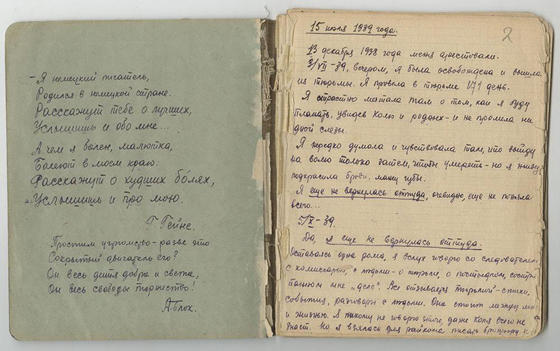 -Я немецкий писатель,
Родился в немецкой стране.
Расскажут тебе о лучших,
Услышишь и обо мне...
А чем я болен, малютка,
Болеют в моем краю.
Расскажут о худших болях,
Услышишь и про мою.
Г. Гейне.
Простим угрюмство - разве это
Сокрытый двигатель его?
Он весь дитя добра и света,
Он весь свободы торжество!
А. Блок.
2
15 июля 1939 года.
13 декабря 1938 года меня арестовали.
3/VII-39, вечером, я была освобождена и вышла
из тюрьмы. Я провела в тюрьме 171 день.
Я страстно мечтала там о том, как я буду
плакать, увидев Колю и родных - и не пролила ни
одной слезы.
Я нередко думала и чувствовала там, что выйду
на волю только затем, чтобы умереть - но я живу,
подкрасила брови, мажу губы.
Я еще не вернулась оттуда, очевидно, еще не поняла
всего...
-39.
Да, я еще не вернулась оттуда.
Оставаясь одна дома, я вслух говорю со следователем,
с комиссией, с людьми - о тюрьме, о постыдном,
моем „деле“. Все отзывается тюрьмой - стихи,
события, разговоры с людьми. Она стоит между мной
и жизнью. Я никому не говорю этого, даже Коля всего не
знает. Но я взялась для райкома писать брошюрку